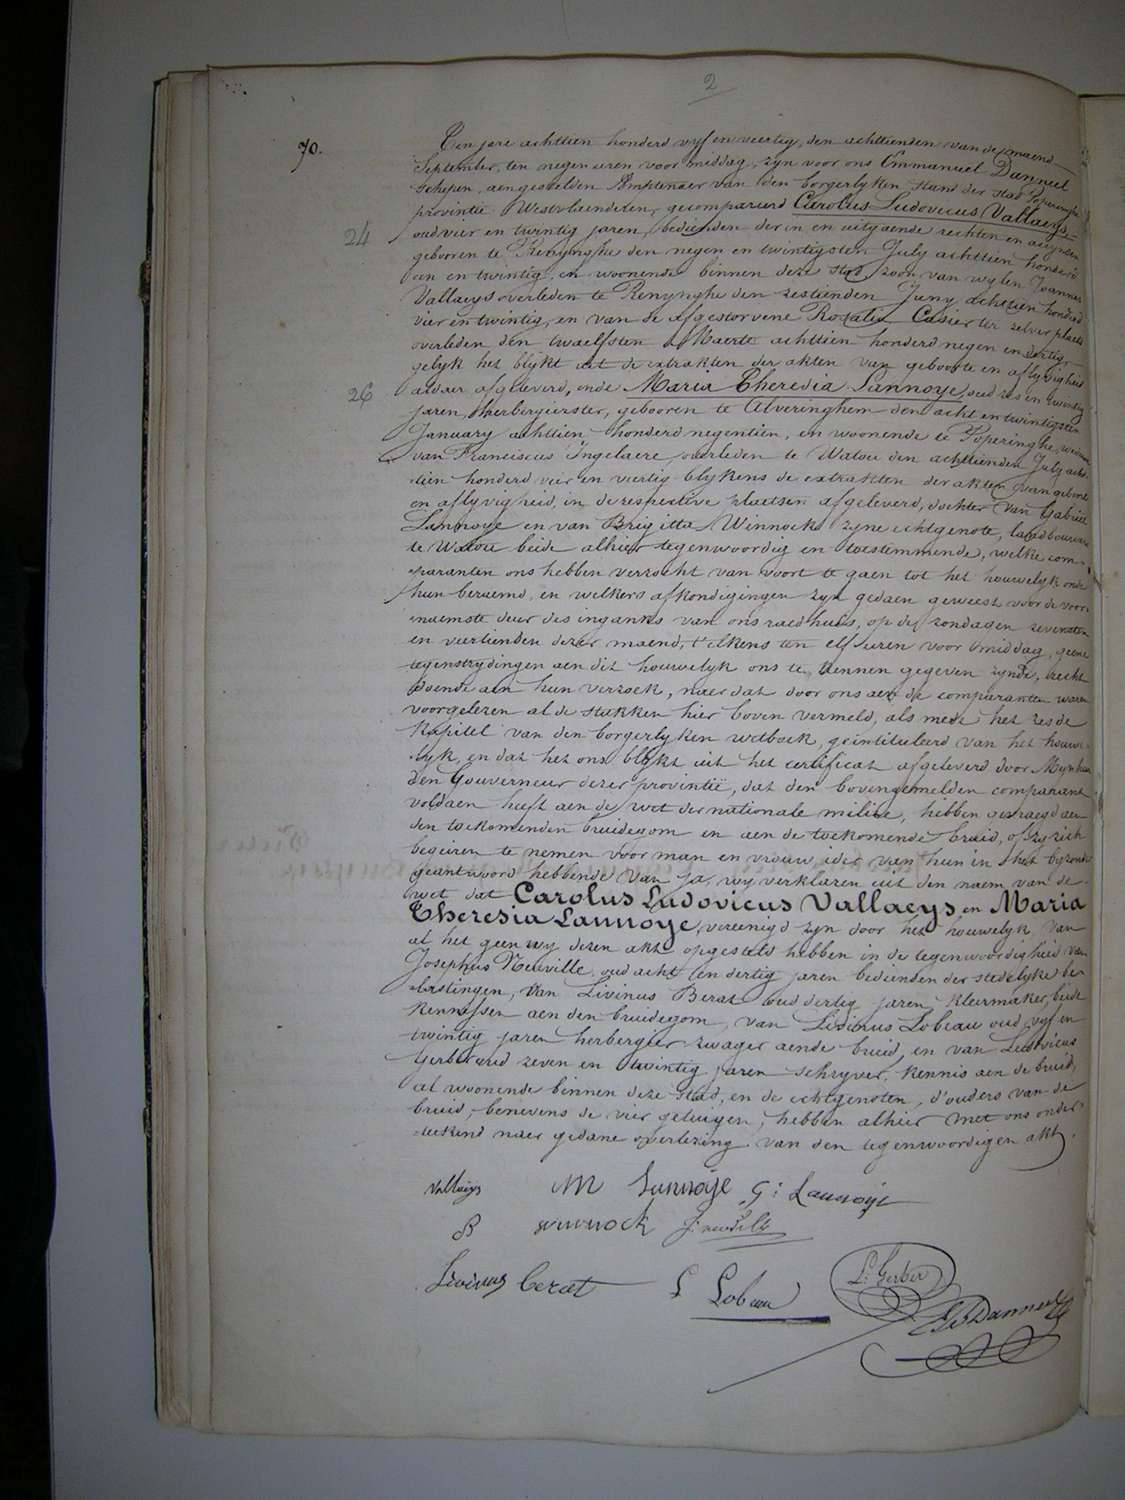 2
70.
Ten jare achttien honderd vyf en veertig, den achttienden van de maend
September, ten negen uren voor middag, zyn voor ons Emmanuel Danneel
Schepen, aengestelden Amptenaer van den borgerlyken stand der stad Poperinghe
provintie Westvlaenderen, gecompareerd Carolus Ludovicus Vallaeys,
24
oud vier en twintig jaren, bedienden der in en uitgaende rechten en accynsen
gebooren te Renynghe den negen en twintigsten July achttien honderd
een en twintig, en woonende binnen deze stad, zoon van wylen Joannes
Vallaeys overleden te Renynghe den zestienden Juny achttien honderd
vier en twintig, en van de afgestorvene Rosalia Casier ter zelver plaets
overleden den twaelfsten Maerte achttien honderd negen en dertig,
gelyk het blykt uit de extrakten der akten van geboorte en aflyvigheid
26
aldaer afgeleverd, ende Maria Theresia Lannoye, oud zes en twintig
jaren, herbergierster, gebooren te Alveringhem den acht en twintigsten
January achttien honderd negentien, en woonende te Poperinghe, weduwe
van Franciscus Ingelaere, overleden te Watou den achttienden July acht-
tien honderd vier en veertig blykens de extrakten der akten van geboorte
en aflyvigheid, in de respective plaetsen afgeleverd, dochter van Gabriël
Lannoye en van Brigitta Winnock zyne echtgenote, landbouwers
te Watou beide alhier tegenwoordig en toestemmende, welke com-
paranten ons hebben verzocht van voort te gaen tot het houwelyk onder
hun beraemd, en welkers afkondigingen zyn gedaen geweest voor de voor-
naemste deur des ingangs van ons raedhuis, op de zondagen zevensten
en veertienden dezer maend, t'elkens ten elf uren voor middag, geene
tegenstrydingen aen dit houwelyk ons te kennen gegeven zynde, recht
doende aen hun verzoek, naer dat door ons aen de comparanten waren
voorgelezen al de stukken hier boven vermeld, als mede het zesde
kapitel van den borgerlyken wetboek, geintituleerd van het houwe-
lyk, en dat het ons blykt uit het certificat afgeleverd door Mynheer
den Gouverneur dezer provintie, dat den bovengemelden comparant
voldaen heeft aen de wet der nationale militie, hebben gevraegd aen
den toekomenden bruidegom en aen de toekomende bruid, of zy zich
begeiren te nemen voor man en vrouw, ider van hun in het byzonder
geantwoord hebbende van ja, wy verklaren uit den naem van de
wet dat Carolus Ludovicus Vallaeys en Maria
Theresia Lannoye, vereenigd zyn door het houwelyk, van
al het geen wy dezen akt opgesteld hebben in de tegenwoordigheid van
Josephus Neuville oud acht en dertig jaren bedienden der stedelyke be-
lastingen, van Livinus Berat oud dertig jaren, kleermaker, beide
kennissen aen den bruidegom, van Livinus Lobeau oud vyf en
twintig jaren herbergier zwager aende bruid, en van Ludovicus
Gerber oud zeven en twintig jaren schryver, kennis aen de bruid,
al woonende binnen deze stad, en de echtgenoten, d'ouders van de
bruid, benevens de vier getuigen, hebben alhier met ons onder-
teekend naer gedane overlezing van den tegenwoordigen akt.
Vallaeys M Lannoije G: Lannoije
B winnock J: neuville
Livinus Berat L Lobeau L: Gerber
Danneel